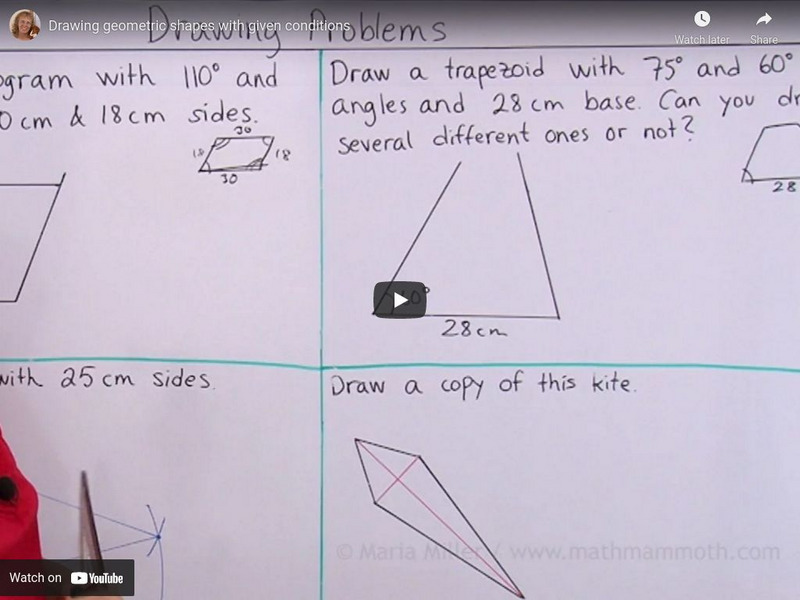 Drawing geometric shapes with given conditions
Watch later
Share
Drawing Problems
ogram with 110° and
0cm & 18cm sides.
30
18
18
30
Draw a trapezoid with 75° and 60°
angles and 28cm base. Can you dr
several different ones or not?
28
28cm
with 25cm sides.
Draw a copy of this kite.
© Maria Miller / www.mathmammoth.com
Watch on YouTube